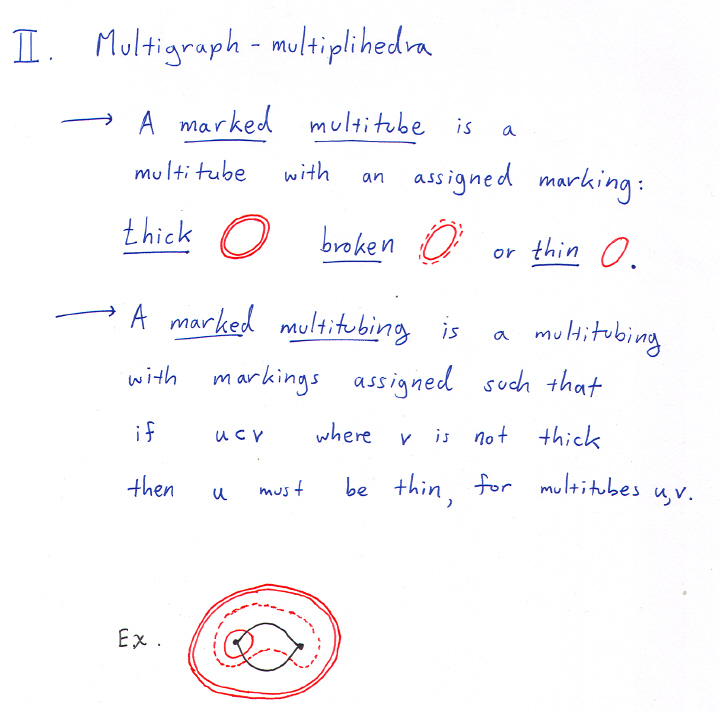 II. Multigraph - multiplihedra
→ A marked multitube is a
multitube with an assigned marking:
thick broken or thin .
→ A marked multitubing is a multitubing
with markings assigned such that
if u⊂v where v is not thick
then u must be thin, for multitubes u,v.
Ex.